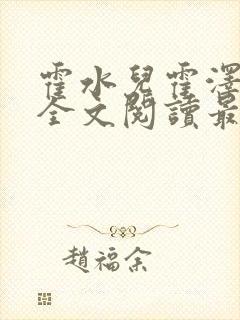 霍水兒霍澤
全文閱讀最
趙福余